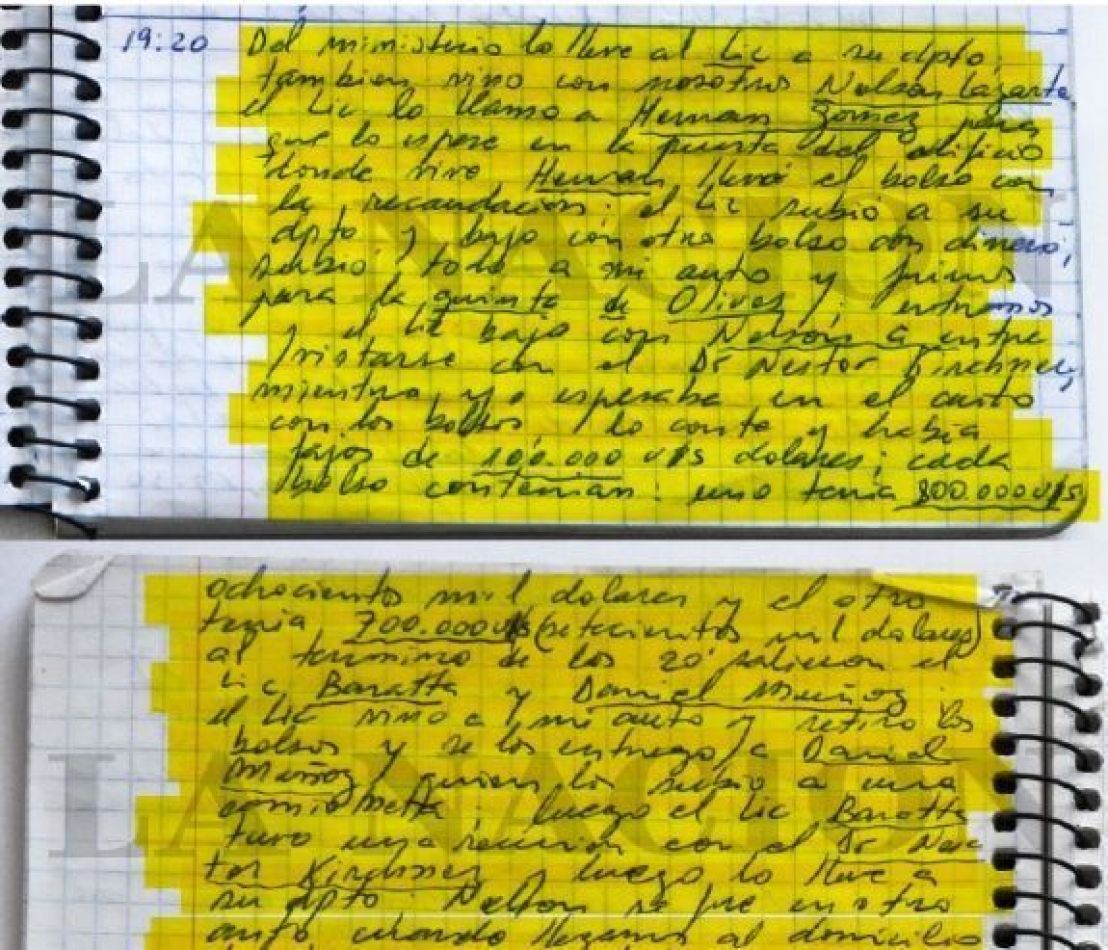 19:20 Del ministerio lo lleve al Lic a su dpto,
tambien vino con nosotros Nelson Lazarte
el Lic lo llamo a Hernan Gomez para
que lo espere en la puerta del edificio
donde vive Hernan, llevó el bolso con
la recaudacion; el Lic subió a su
dpto y bajo con otro bolso con dinero;
subió todo a mi auto y fuimos
para la quinta de Olivos; entramos
y el Lic bajo con Nelson a entre
vistarse con el Dr Nestor Kirchner,
mientras yo esperaba en el auto
con los bolsos lo conte y habia
fajos de 100.000 U$S dolares; cada
bolso contenian: uno tenia 800.000 U$S
ochocientos mil dolares y el otro
tenia 700.000 U$S (setecientos mil dolares)
al termino de los 20' salieron el
Lic Baratta y Daniel Muñoz
el Lic vino a mi auto y retiro los
bolsos y se los entrego a Daniel
Muñoz quien los subio a una
camionetta; luego el Lic Baratta
tuvo una reunion con el Dr Nes
tor Kirchner y luego lo lleve a
su dpto. Nelson se fue en otro
auto cuando llegamos al domicilio
LA NACION
LA NACION